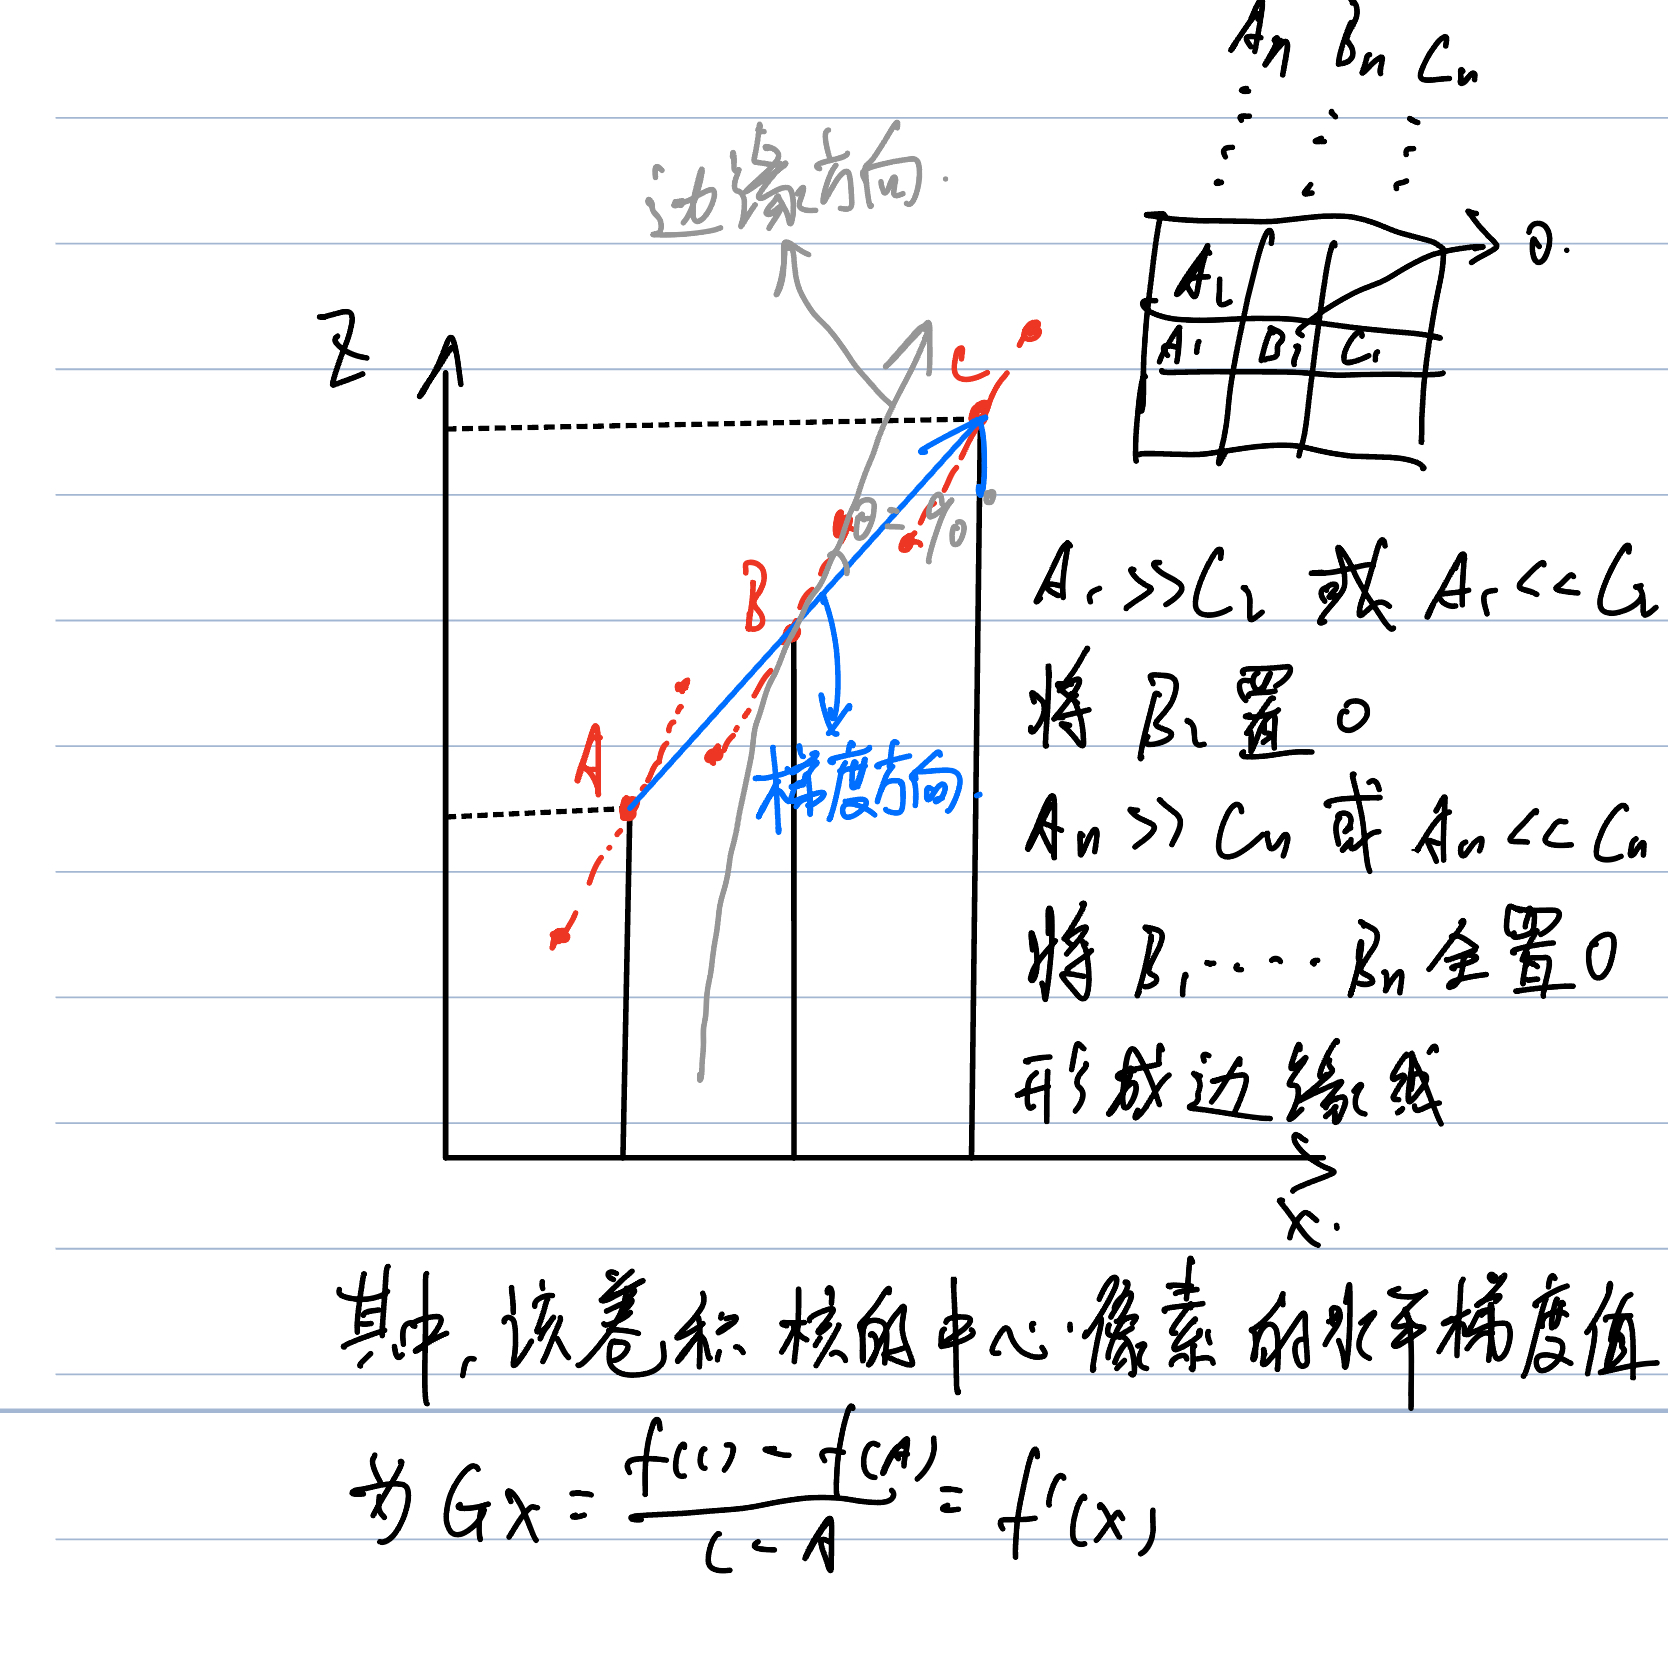 An Bn Cn
边缘方向.
A2 0.
A1 B1 C1
Z
C
θ=90°
B
A
梯度方向.
A1>>C2 或 A1<<C2
将 B2 置 0
An>>Cn 或 An<<Cn
将 B1.....Bn 全置0
形成边缘线
x.
其中,该卷积核的中心像素的水平梯度值
为 Gx = f(C) - f(A) / C - A = f'(x)